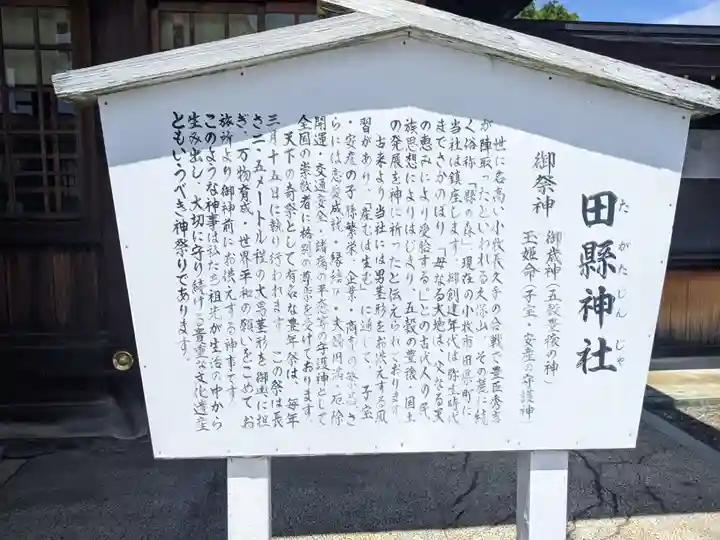 田縣神社
たがたじんじゃ
御祭神
御歳神（五穀豊穣の神）
玉姫命（子宝・安産の守護神）
世に名高い小牧長久手の合戦で豊臣秀吉
が陣取ったといわれる久保山、その麓に続
く俗称「縣の森」現在の小牧市田県町に
当社は鎮座します。御創建年代は弥生時代
までさかのぼり「母なる大地は、父なる天
の恵みにより受胎する」との古代人の民
族思想によりはじまり、五穀の豊穣、国土
の発展を神に祈ったと伝えられております。
古来より当社には男茎形をお供えする風
習があり、「産むは生む」に通じて、子宝
・安産の子孫繁栄、企業、商売の繁栄、さ
らには恋愛成就・縁結び・夫婦円満・厄除
開運・交通安全・諸病の平癒等の守護神として
全国の崇敬者に格別の尊崇を受けております。
天下の奇祭として有名な豊年祭は、毎年
三月十五日に執り行われます。この祭は長
さ二・五メートル程の大男茎形を御輿に担
ぎ、万物育成・世界平和の願いをこめてお
旅所より御神前にお供えする神事です。
このような神事は私たち祖先が生活の中から
生み出し、大切に守り続ける貴重な文化遺産
ともいうべき神祭りであります。